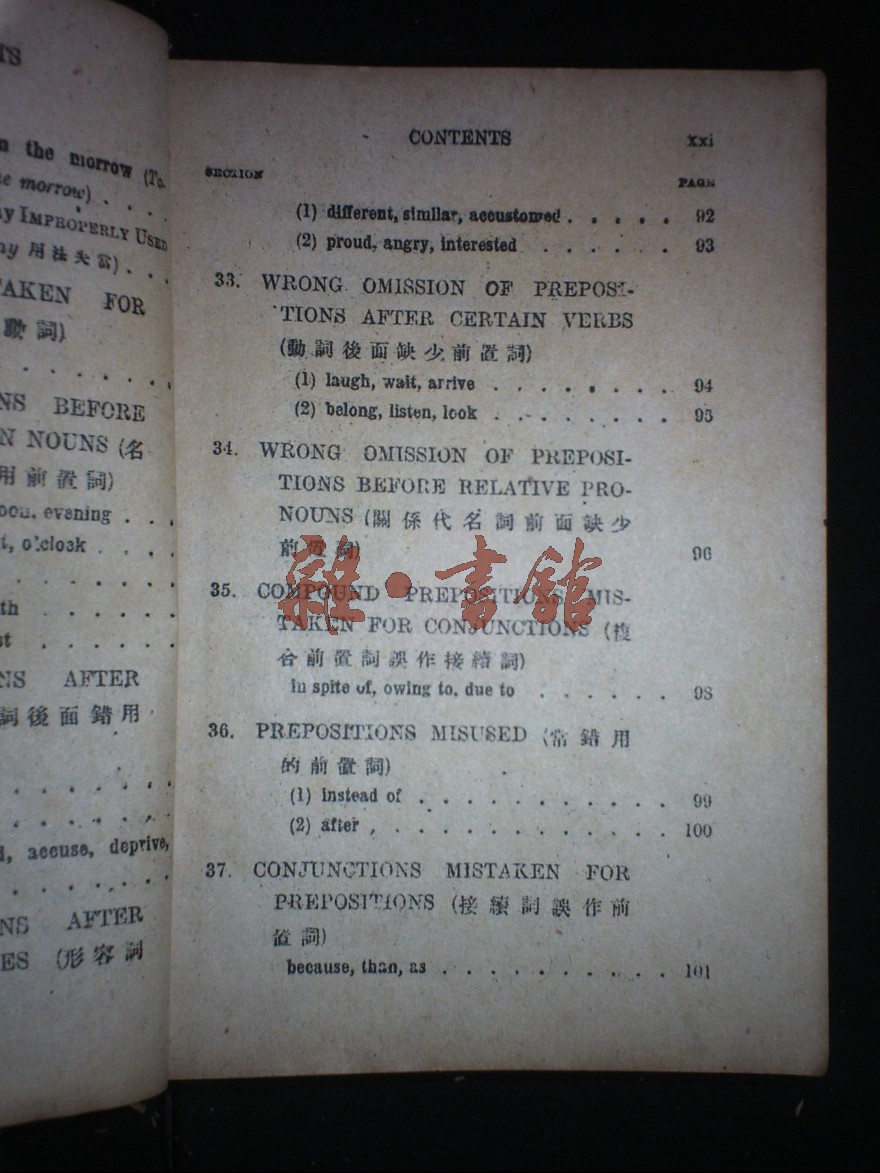 TS
n the morrow (To.
e morrow) . . . .
y IMPROPERLY USED
ny 用法失當) . . .
TAKEN FOR
詞)
NS BEFORE
N NOUNS (名
用前置詞)
evening . . .
t, o'clock . . . .
th . . . . .
st . . . . .
NS AFTER
詞後面錯用
, accuse, deprive,
NS AFTER
ES (形容詞
CONTENTS xxi
SECTION PAGE
(1) different, similar, accustomed . . . . . 92
(2) proud, angry, interested . . . . . . 93
33. WRONG OMISSION OF PREPOSI-
TIONS AFTER CERTAIN VERBS
(動詞後面缺少前置詞)
(1) laugh, wait, arrive . . . . . . . . 94
(2) belong, listen, look . . . . . . . . 95
34. WRONG OMISSION OF PREPOSI-
TIONS BEFORE RELATIVE PRO-
NOUNS (關係代名詞前面缺少
前置詞) 96
35. COMPOUND PREPOSITIONS MIS-
TAKEN FOR CONJUNCTIONS (複
合前置詞誤作接續詞)
in spite of, owing to, due to . . . . . . 98
36. PREPOSITIONS MISUSED (常錯用
的前置詞)
(1) instead of . . . . . . . . . . . 99
(2) after . . . . . . . . . . . . 100
37. CONJUNCTIONS MISTAKEN FOR
PREPOSITIONS (接續詞誤作前
置詞)
because, than, as . . . . . . . . . 101
雜·書館